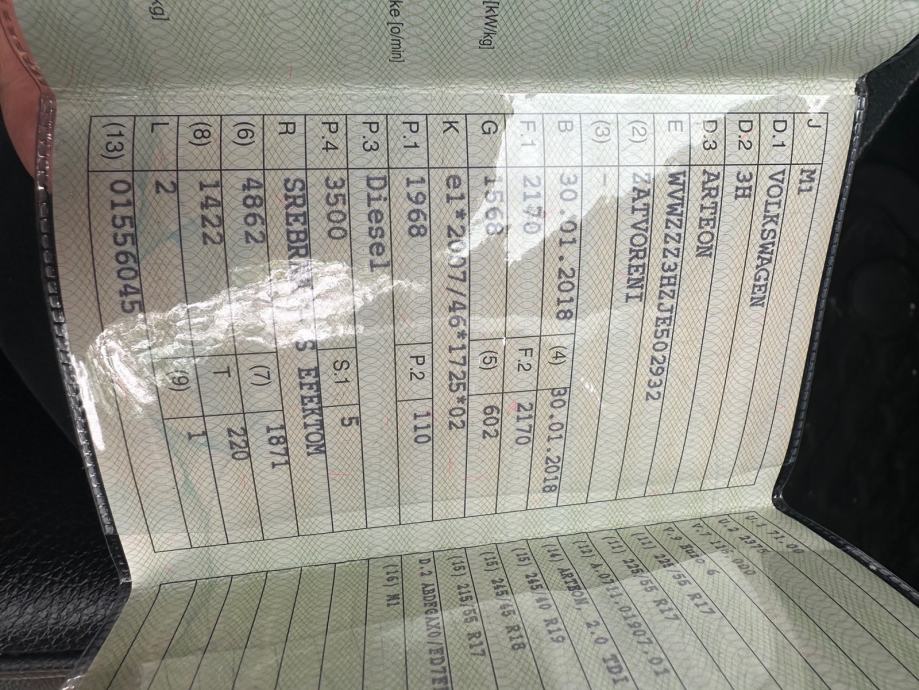 [kW/kg]
ke [o/min]
kg]
J M1
D.1 VOLKSWAGEN
D.2 3H
D.3 ARTEON
E WVWZZZ3HZJE502932
(2) ZATVORENI
(3) -
B 30.01.2018 (4) 30.01.2018
F.1 2170 F.2 2170
G 1568 (5) 602
K e1*2007/46*1725*02
P.1 1968 P.2 110
P.3 Diesel
P.4 3500 S.1 5
R S EFEKTOM
(6) 4862 (7) 1871
(8) 1422 T 220
L 2 (9) 1
(13) 01556045
V.9 Euro 6
(11) 225/55 R17
(11) 225/55 R17
(14) ARTEON, 2.0 TDI
(15) 245/40 R19
(15) 245/45 R18
(15) 215/55 R17
(16) M1